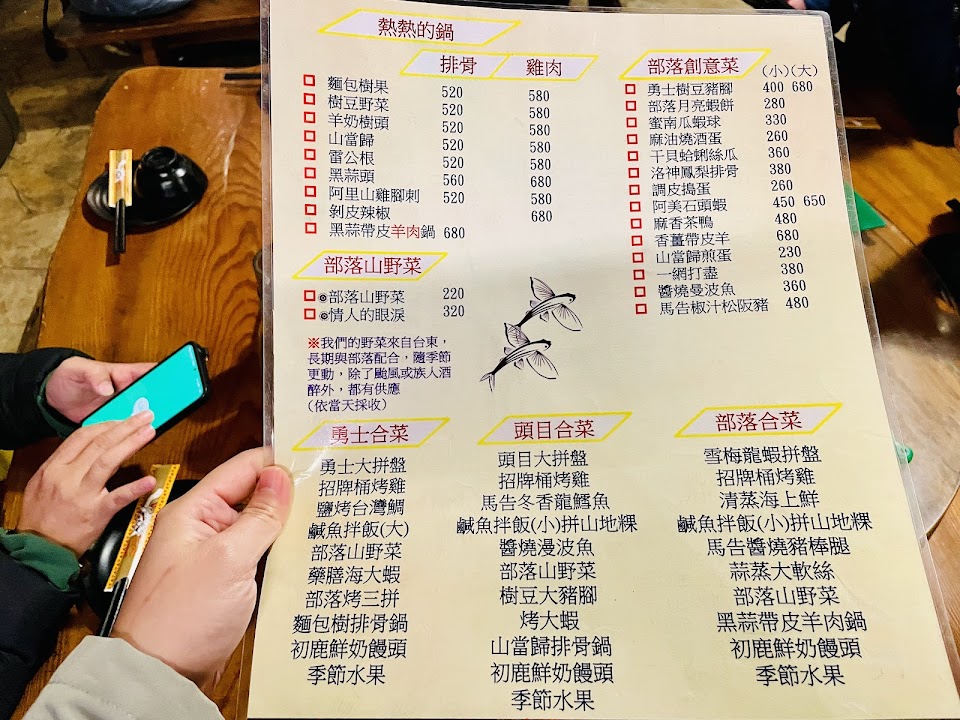 熱熱的鍋
排骨 雞肉
麵包樹果 520 580
樹豆野菜 520 580
羊奶樹頭 520 580
山當歸 520 580
雷公根 520 580
黑蒜頭 560 680
阿里山雞腳刺 520 580
剝皮辣椒 680
黑蒜帶皮羊肉鍋 680
部落山野菜
部落山野菜 220
情人的眼淚 320
※我們的野菜來自台東，
長期與部落配合，隨季節
更動，除了颱風或族人酒
醉外，都有供應
（依當天採收）
部落創意菜 (小)(大)
勇士樹豆豬腳 400 680
部落月亮蝦餅 280
蜜南瓜蝦球 330
麻油燒酒蛋 260
干貝蛤蜊絲瓜 360
洛神鳳梨排骨 380
調皮搗蛋 260
阿美石頭蝦 450 650
麻香茶鴨 480
香薑帶皮羊 680
山當歸煎蛋 230
一網打盡 380
醬燒曼波魚 360
馬告椒汁松阪豬 480
勇士合菜
勇士大拼盤
招牌桶烤雞
鹽烤台灣鯛
鹹魚拌飯(大)
部落山野菜
藥膳海大蝦
部落烤三拼
麵包樹排骨鍋
初鹿鮮奶饅頭
季節水果
頭目合菜
頭目大拼盤
招牌桶烤雞
馬告冬香龍鱈魚
鹹魚拌飯(小)拼山地粿
醬燒漫波魚
部落山野菜
樹豆大豬腳
烤大蝦
山當歸排骨鍋
初鹿鮮奶饅頭
季節水果
部落合菜
雪梅龍蝦拼盤
招牌桶烤雞
清蒸海上鮮
鹹魚拌飯(小)拼山地粿
馬告醬燒豬棒腿
蒜蒸大軟絲
部落山野菜
黑蒜帶皮羊肉鍋
初鹿鮮奶饅頭
季節水果